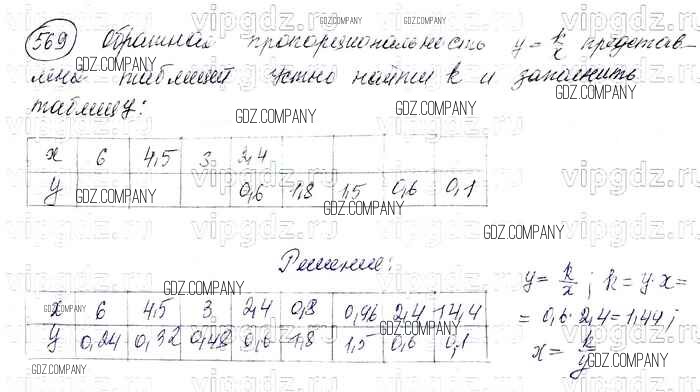 569 Обратная пропорциональность y = k/x представ-
лена таблицей Устно найти k и заполнить
таблицу:
x 6 4,5 3 2,4
y 0,6 1,8 1,5 0,6 0,1
Решение:
x 6 4,5 3 2,4 0,8 0,96 2,4 14,4
y 0,24 0,32 0,48 0,6 1,8 1,5 0,6 0,1
y = k/x ; k = y·x =
= 0,6·2,4 = 1,44 ;
x = k/y
GDZ.COMPANY
vipgdz.ru